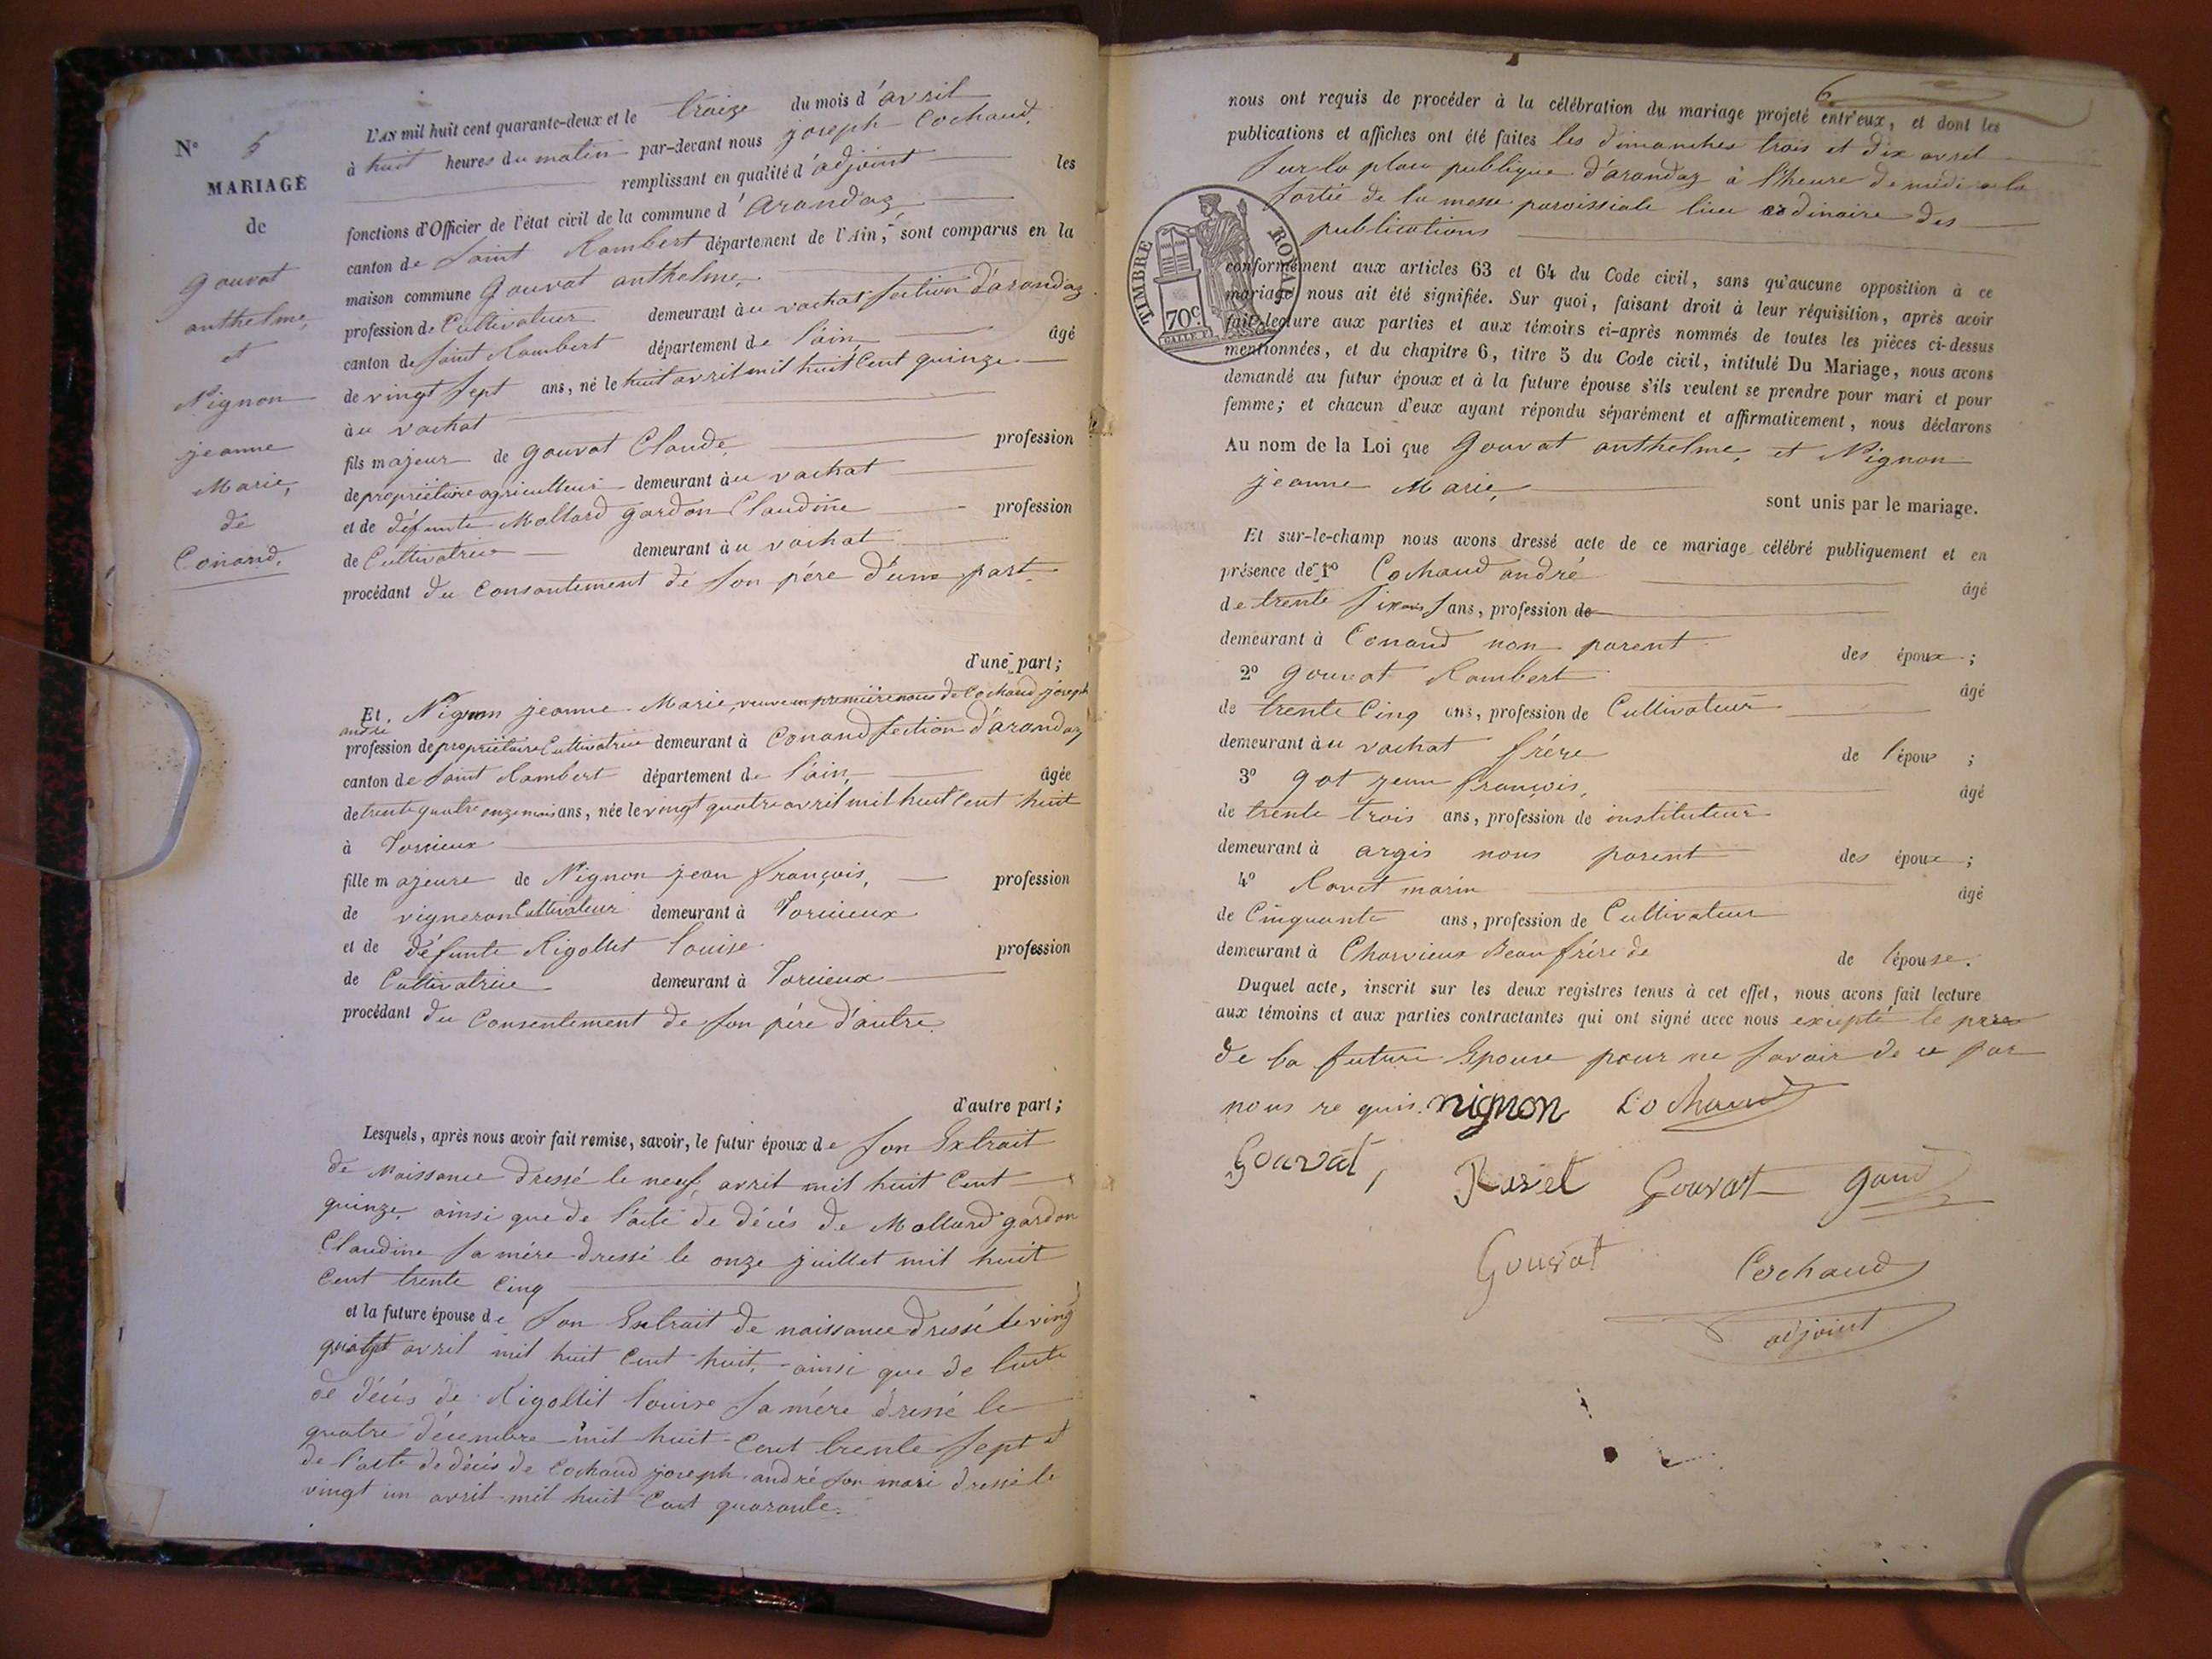 N° 5
MARIAGE
de
Gouvat
anthelme,
et
Nignon
jeanne
Marie,
de
Conand.
L'AN mil huit cent quarante-deux et le traize du mois d'avril
à huit heures du matin par-devant nous joseph Cochaud,
remplissant en qualité d'adjoint les
fonctions d'Officier de l'état civil de la commune d'arandaz
canton de Saint Rambert département de l'Ain, sont comparus en la
maison commune Gouvat anthelme,
profession de Cultivateur demeurant àu vachat section d'arandaz
canton de Saint Rambert département de l'ain âgé
de vingt sept ans, né le huit avril mil huit Cent quinze
àu vachat
fils majeur de gouvat Claude, profession
de propriétaire agriculteur demeurant àu vachat
et de défunte Mollard gardon Claudine profession
de Cultivatrice demeurant àu vachat
procédant du Consantement de son père d'une part.
d'une part;
Et, Nignon jeanne Marie, veuve en premiere nous de Cochaud joseph
andré
profession de propriétaire Cultivatrice demeurant à Conand section d'arandaz
canton de Saint Rambert département de l'ain, âgée
de trente quatre onze mois ans, née le vingt quatre avril mil huit Cent huit
à Torcieux
fille majeure de Nignon jean françois, profession
de vigneron Cultivateur demeurant à Torcieux
et de défunte Rigollet Louise profession
de Cultivatrice demeurant à Torcieux
procédant du Consentement de son père d'autre
d'autre part;
Lesquels, après nous avoir fait remise, savoir, le futur époux de son Extrait
de Naissance dressé le neuf, avril mil huit Cent
quinze, ainsi que de l'acte de décés de Mollard gardon
Claudine sa mére dressé le onze juillet mil huit
Cent trente Cinq
et la future épouse de son Extrait de naissance dressé le ving
avril mil huit Cent huit, ainsi que de l'acte
de décés de Rigollit Louise sa mére dressé le
quatre décembre mil huit Cent trente sept et
de l'acte de décés de Cochaud joseph andré son mari dressé le
vingt un avril mil huit Cent quarante.
6
nous ont requis de procéder à la célébration du mariage projeté entr'eux, et dont les
publications et affiches ont été faites les dimanches trois et dix avril
sur la place publique d'arandaz à l'heure de midi a la
sortie de la messe paroissiale lieu ordinaire des
publications
TIMBRE ROYAL
70c.
conformément aux articles 63 et 64 du Code civil, sans qu'aucune opposition à ce
mariage nous ait été signifiée. Sur quoi, faisant droit à leur réquisition, après avoir
fait lecture aux parties et aux témoins ci-après nommés de toutes les pièces ci-dessus
mentionnées, et du chapitre 6, titre 5 du Code civil, intitulé Du Mariage, nous avons
demandé au futur époux et à la future épouse s'ils veulent se prendre pour mari et pour
femme; et chacun d'eux ayant répondu séparément et affirmativement, nous déclarons
Au nom de la Loi que Gouvat anthelme, et Nignon
jeanne Marie, sont unis par le mariage.
Et sur-le-champ nous avons dressé acte de ce mariage célébré publiquement et en
présence de 1° Cochaud andré âgé
de trente six ans, profession de
demeurant à Conand non parent des époux;
2° gouvat Rambert âgé
de trente Cinq ans, profession de Cultivateur
demeurant àu vachat frére de l'époux;
3° got jean françois, âgé
de trente trois ans, profession de instituteur
demeurant à argis nons parent des époux;
4° Ravet marin âgé
de Cinquante ans, profession de Cultivateur
demeurant à Charvieux Beau frére de de l'épouse.
Duquel acte, inscrit sur les deux registres tenus à cet effet, nous avons fait lecture
aux témoins et aux parties contractantes qui ont signé avec nous excepté le père
de la future Epouse pour ne savoir de ce par
nous re quis. nignon Cochaud
Gouvat, Ravet Gouvat
Gouvat Cochaud
adjoint